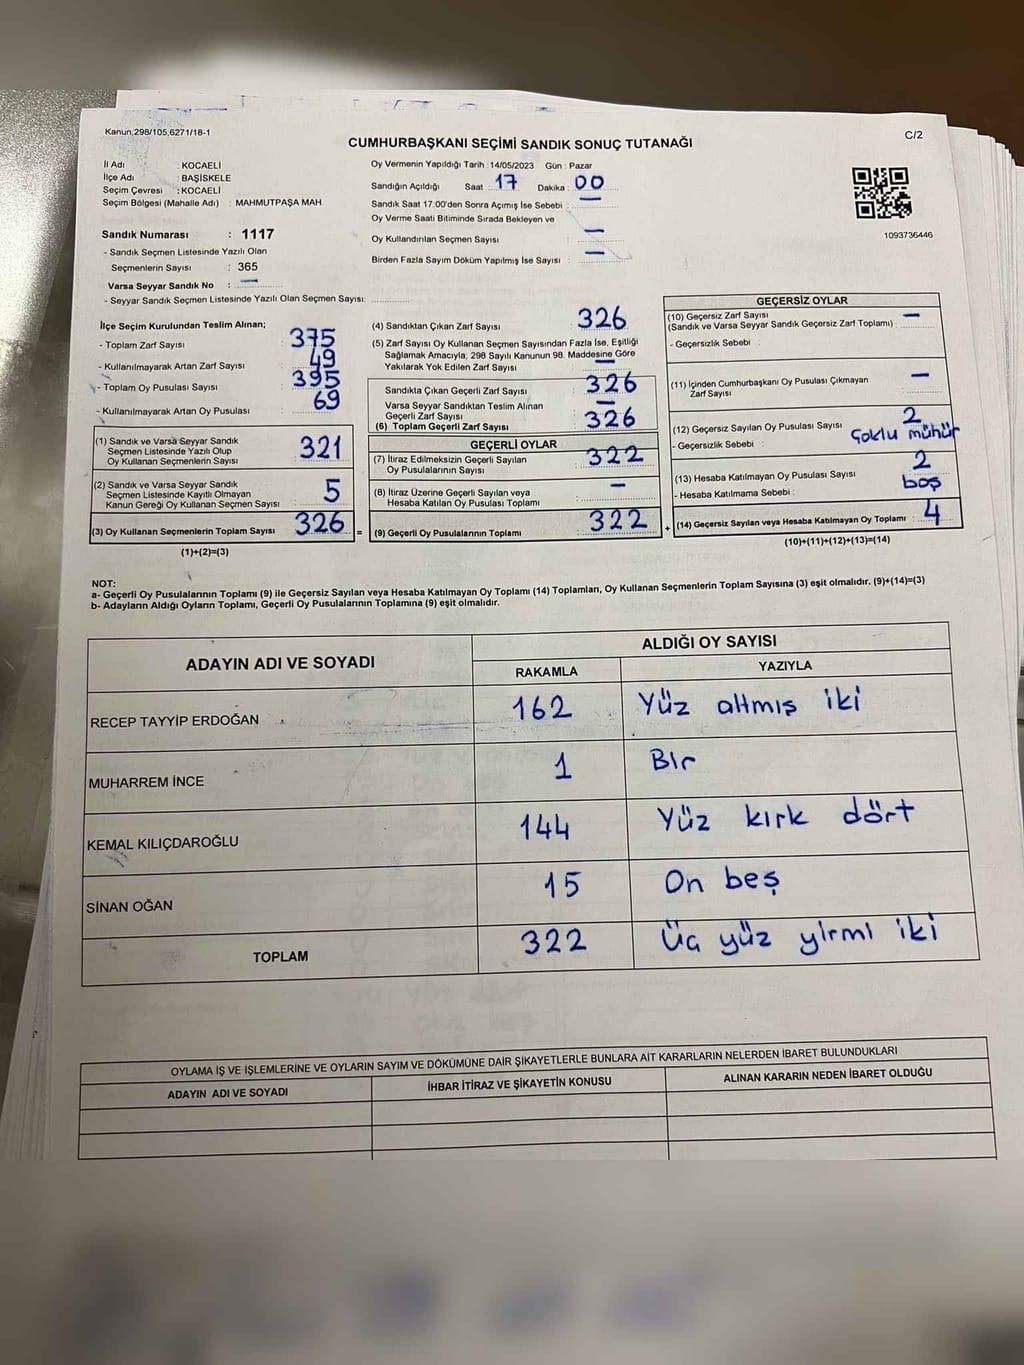 Kanun,298/105,6271/18-1
C/2
CUMHURBAŞKANI SEÇİMİ SANDIK SONUÇ TUTANAĞI
İl Adı : KOCAELİ
İlçe Adı : BAŞİSKELE
Seçim Çevresi : KOCAELİ
Seçim Bölgesi (Mahalle Adı) : MAHMUTPAŞA MAH.
Sandık Numarası : 1117
- Sandık Seçmen Listesinde Yazılı Olan
Seçmenlerin Sayısı : 365
Varsa Seyyar Sandık No : —
- Seyyar Sandık Seçmen Listesinde Yazılı Olan Seçmen Sayısı:
Oy Vermenin Yapıldığı Tarih : 14/05/2023 Gün : Pazar
Sandığın Açıldığı Saat : 17 Dakika : 00
Sandık Saat 17:00'den Sonra Açımış İse Sebebi : —
Oy Verme Saati Bitiminde Sırada Bekleyen ve
Oy Kullandırılan Seçmen Sayısı : —
Birden Fazla Sayım Döküm Yapılmış İse Sayısı : —
1093736446
İlçe Seçim Kurulundan Teslim Alınan;
- Toplam Zarf Sayısı : 375
- Kullanılmayarak Artan Zarf Sayısı : 49
- Toplam Oy Pusulası Sayısı : 395
- Kullanılmayarak Artan Oy Pusulası : 69
(1) Sandık ve Varsa Seyyar Sandık
Seçmen Listesinde Yazılı Olup
Oy Kullanan Seçmenlerin Sayısı 321
(2) Sandık ve Varsa Seyyar Sandık
Seçmen Listesinde Kayıtlı Olmayan
Kanun Gereği Oy Kullanan Seçmen Sayısı 5
(3) Oy Kullanan Seçmenlerin Toplam Sayısı 326 =
(1)+(2)=(3)
(4) Sandıktan Çıkan Zarf Sayısı : 326
(5) Zarf Sayısı Oy Kullanan Seçmen Sayısından Fazla İse, Eşitliği
Sağlamak Amacıyla; 298 Sayılı Kanunun 98. Maddesine Göre
Yakılarak Yok Edilen Zarf Sayısı : —
Sandıkta Çıkan Geçerli Zarf Sayısı : 326
Varsa Seyyar Sandıktan Teslim Alınan
Geçerli Zarf Sayısı : —
(6) Toplam Geçerli Zarf Sayısı : 326
GEÇERLİ OYLAR
(7) İtiraz Edilmeksizin Geçerli Sayılan
Oy Pusulalarının Sayısı : 322
(8) İtiraz Üzerine Geçerli Sayılan veya
Hesaba Katılan Oy Pusulası Toplamı : —
(9) Geçerli Oy Pusulalarının Toplamı : 322 +
GEÇERSİZ OYLAR
(10) Geçersiz Zarf Sayısı : —
(Sandık ve Varsa Seyyar Sandık Geçersiz Zarf Toplamı)
- Geçersizlik Sebebi :
(11) İçinden Cumhurbaşkanı Oy Pusulası Çıkmayan
Zarf Sayısı : —
(12) Geçersiz Sayılan Oy Pusulası Sayısı : 2
- Geçersizlik Sebebi : Çoklu mühür
(13) Hesaba Katılmayan Oy Pusulası Sayısı : 2
- Hesaba Katılmama Sebebi : boş
(14) Geçersiz Sayılan veya Hesaba Katılmayan Oy Toplamı : 4
(10)+(11)+(12)+(13)=(14)
NOT:
a- Geçerli Oy Pusulalarının Toplamı (9) ile Geçersiz Sayılan veya Hesaba Katılmayan Oy Toplamı (14) Toplamları, Oy Kullanan Seçmenlerin Toplam Sayısına (3) eşit olmalıdır. (9)+(14)=(3)
b- Adayların Aldığı Oyların Toplamı, Geçerli Oy Pusulalarının Toplamına (9) eşit olmalıdır.
ADAYIN ADI VE SOYADI
ALDIĞI OY SAYISI
RAKAMLA YAZIYLA
RECEP TAYYİP ERDOĞAN 162 Yüz altmış iki
MUHARREM İNCE 1 Bir
KEMAL KILIÇDAROĞLU 144 Yüz kırk dört
SİNAN OĞAN 15 On beş
TOPLAM 322 Üç yüz yirmi iki
OYLAMA İŞ VE İŞLEMLERİNE VE OYLARIN SAYIM VE DÖKÜMÜNE DAİR ŞİKAYETLERLE BUNLARA AİT KARARLARIN NELERDEN İBARET BULUNDUKLARI
ADAYIN ADI VE SOYADI İHBAR İTİRAZ VE ŞİKAYETİN KONUSU ALINAN KARARIN NEDEN İBARET OLDUĞU